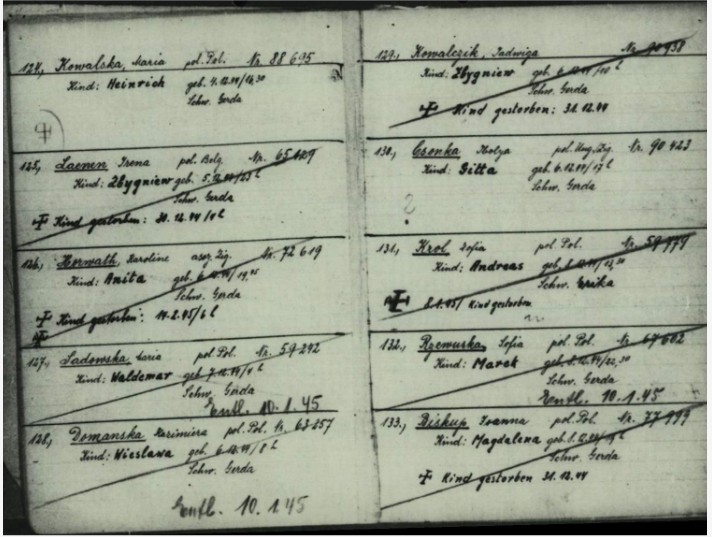 124, Kowalska, Maria pol. Pol. Nr. 88 695
Kind: Heinrich geb. 4.12.44/16,30
Schw. Gerda
125, Laenen Irena pol. Belg. Nr. 65
Kind: Zbygniew geb. 5.12.44/23 h
Schw. Gerda
Kind gestorben: 30.12.44
126, Horwath Karoline asoz. Zig. Nr. 72 619
Kind: Anita geb. 6.12.44/19,45
Schw. Gerda
Kind gestorben: 14.2.45/6 h
127, Sadowska, Maria pol. Pol. Nr. 59 242
Kind: Waldemar geb. 7.12.44/4 h
Schw. Gerda
Entl. 10.1.45
128, Domanska Kazimiera pol. Pol. Nr. 63 257
Kind: Wieslawa geb. 6.12.44/8 h
Schw. Gerda
Entl. 10.1.45
129, Kowalczik, Jadwiga Nr. 90 938
Kind: Zbygniew geb. 6.12.44/10 h
Schw. Gerda
Kind gestorben: 31.12.44
130, Csonka pol. Ung. Zig. Nr. 90 423
Kind: Gitta geb. 6.12.44/17 h
Schw. Gerda
?
131, Krol Zofia pol. Pol. Nr. 59 779
Kind: Andreas geb. 8.12.44/12,30
Schw. Erika
8.1.45/ Kind gestorben
132, Rzewuska, Sofia pol. Pol. Nr. 67 602
Kind: Marek geb. 8.12.44/22,30
Schw. Gerda
Entl. 10.1.45
133, Biskup Joanna pol. Pol. Nr. 77 999
Kind: Magdalena geb.
Schw. Gerda
Kind gestorben 31.12.44